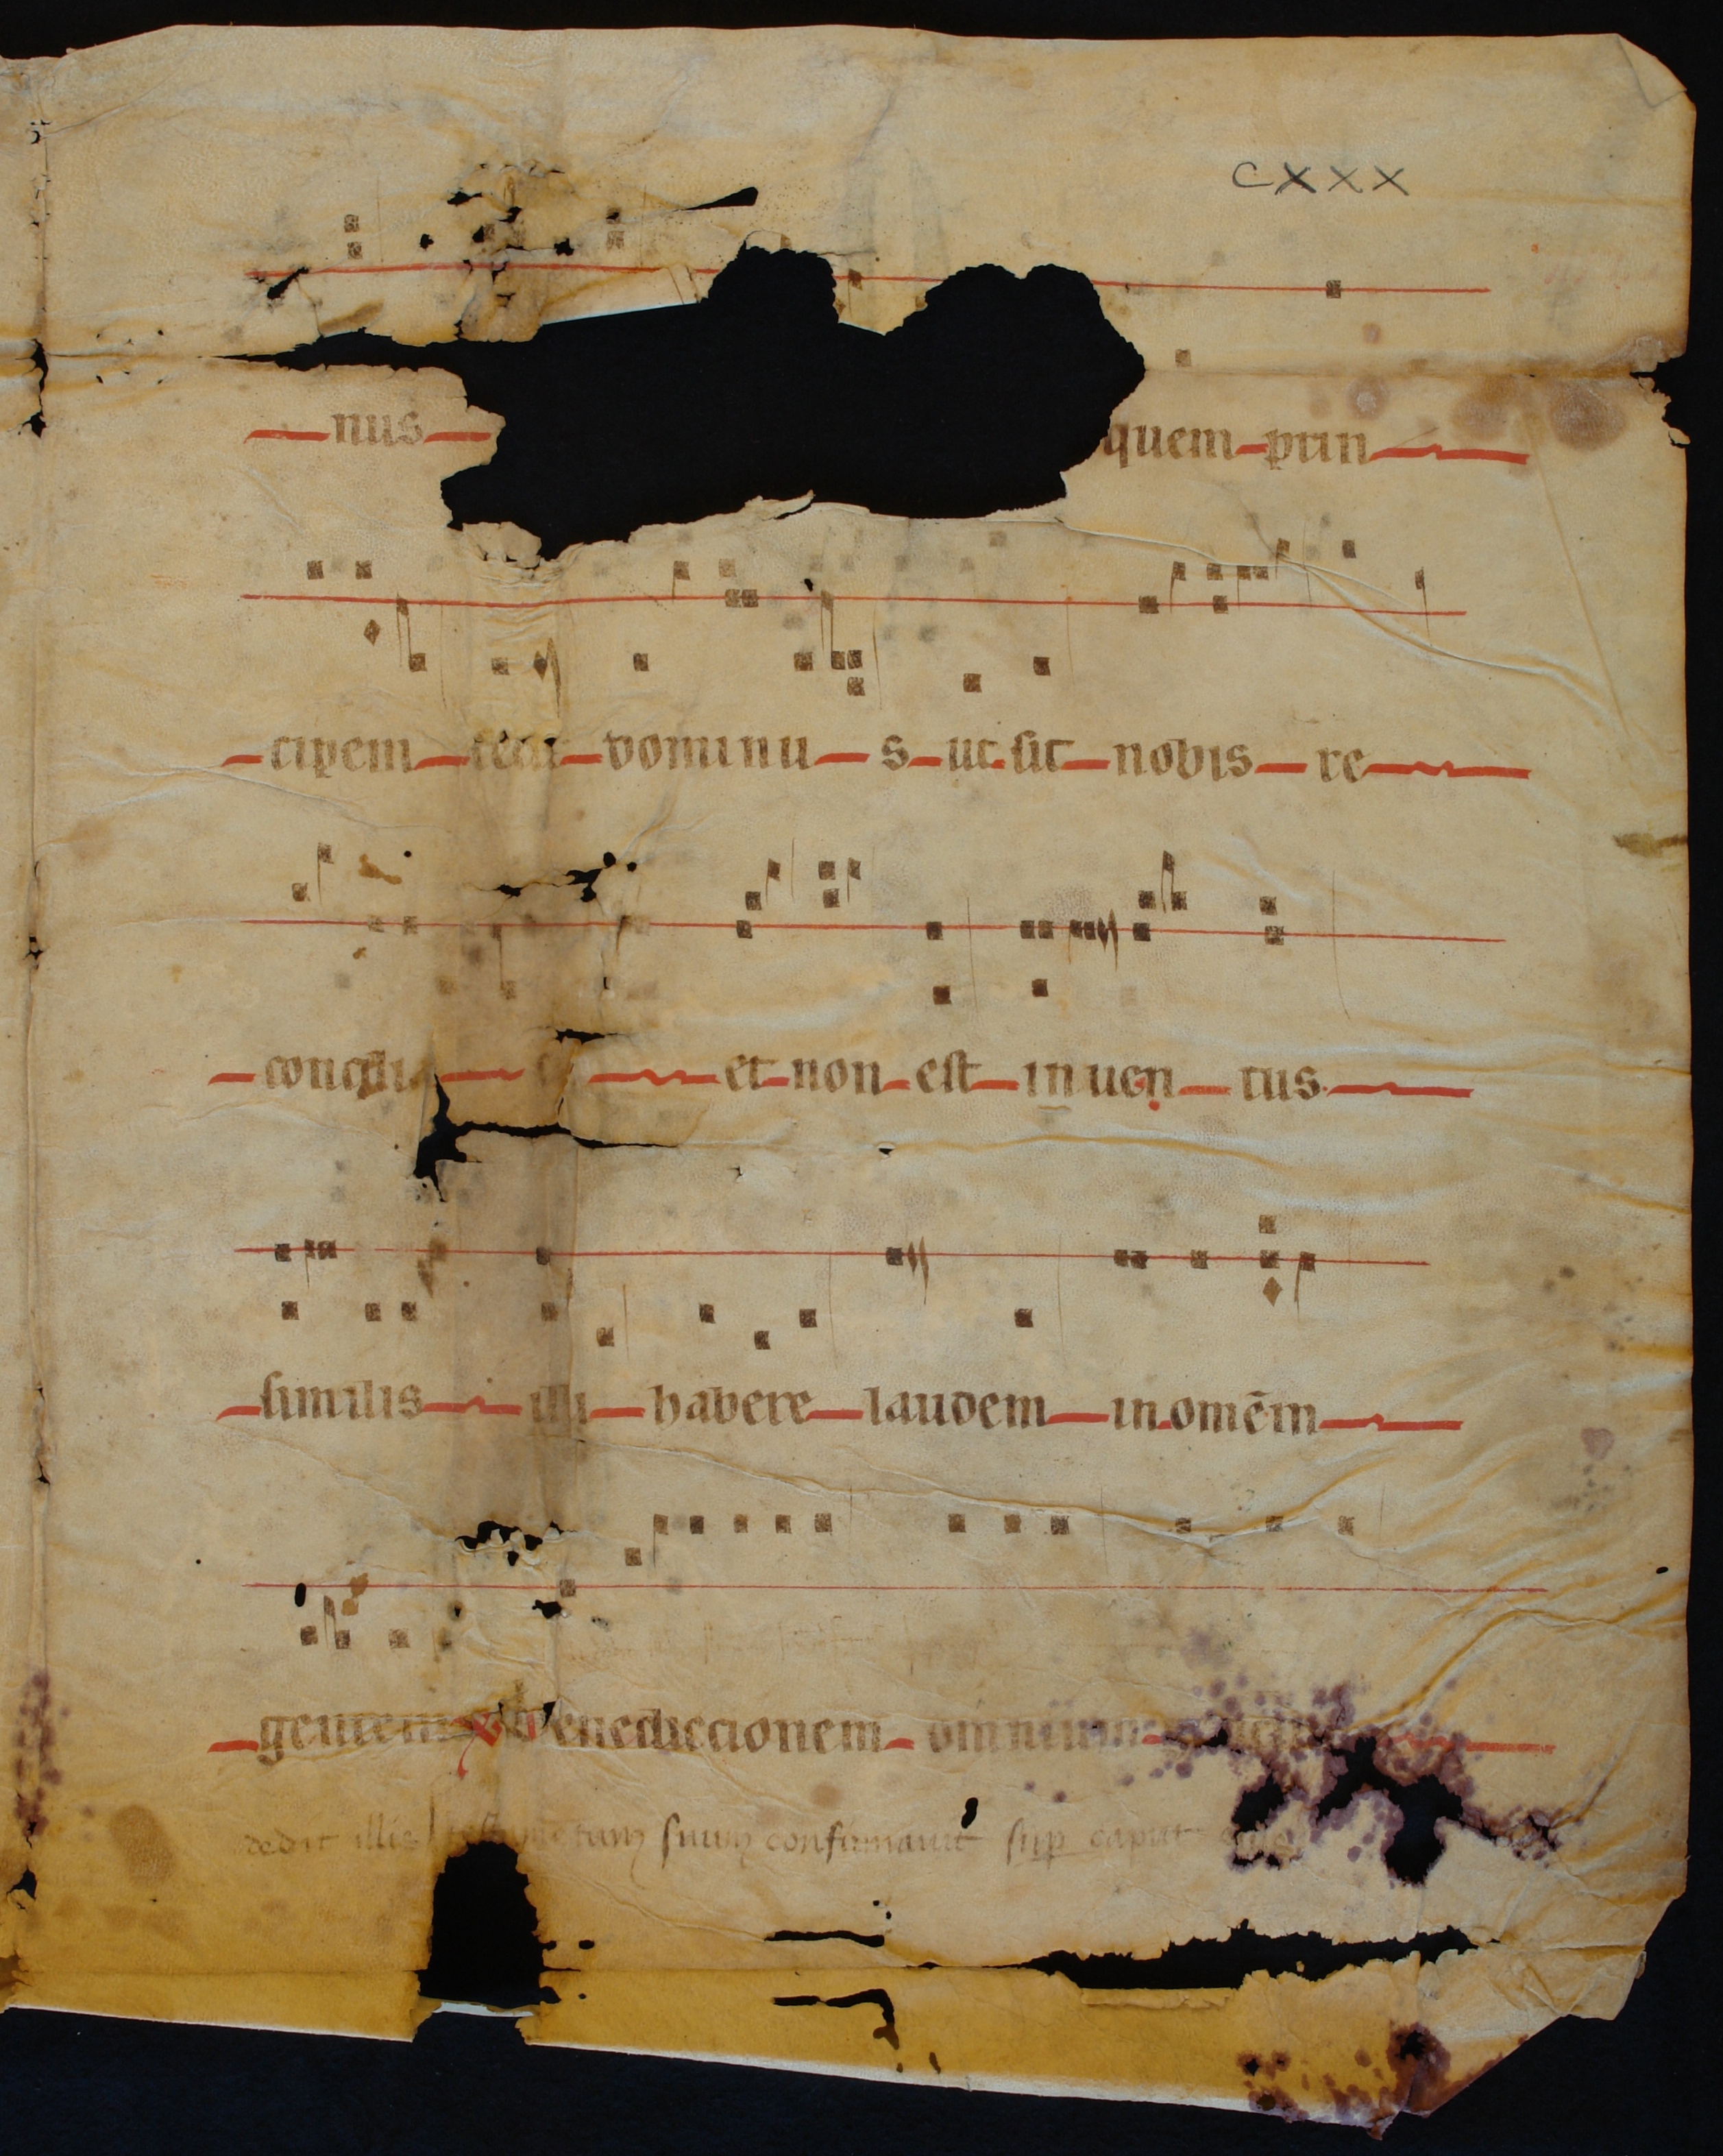 cxxx
nus quem prin
cipem fecit dominu s ut sit nobis re
concili et non est inuen tus
similis illi habere laudem in omēm
gentem v benediccionem omnium
dedit illis testamentum suum confirmauit sup caput